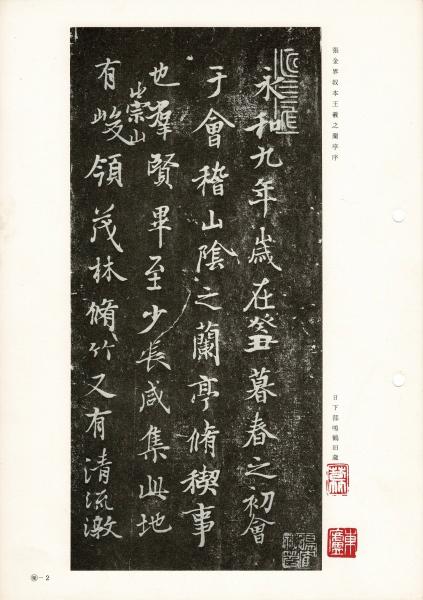 張金界奴本王羲之蘭亭序
日下部鳴鶴旧蔵
永和九年歲在癸丑暮春之初會
于會稽山陰之蘭亭脩稧事
也羣賢畢至少長咸集此地
有崇山
峻領茂林脩竹又有清流激
-2